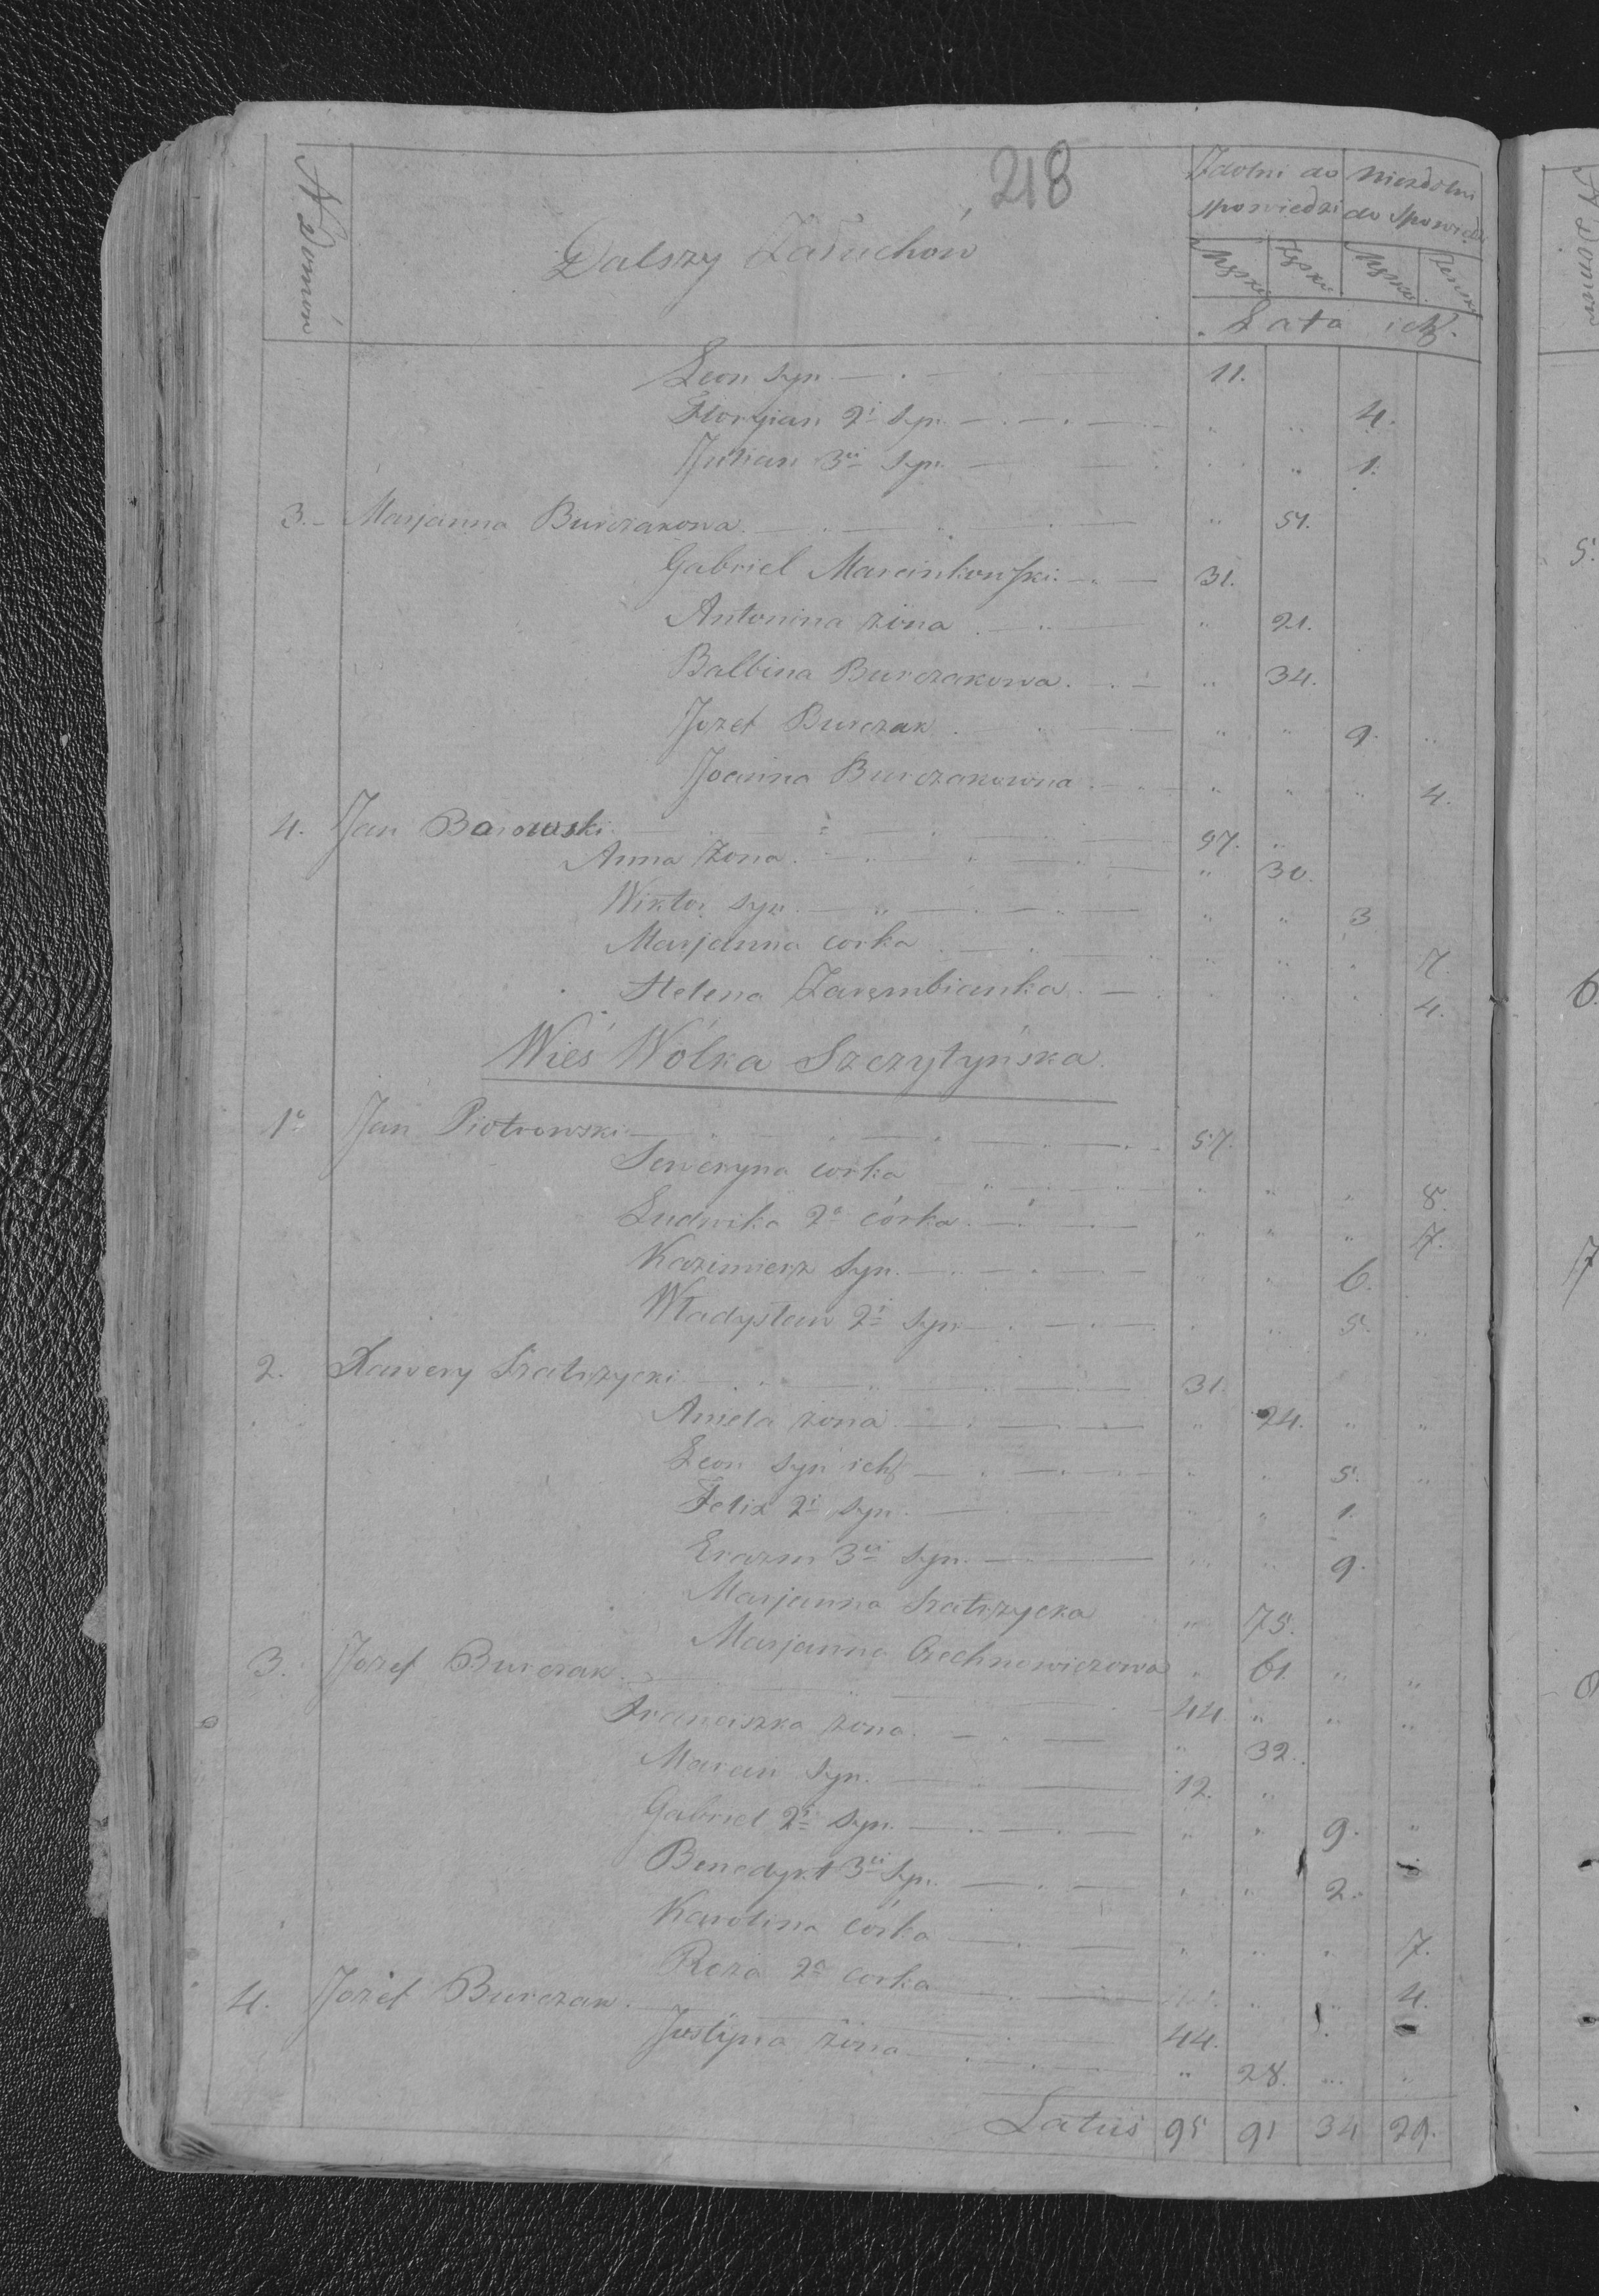 218
N Domów
Dalszy Załuchów
Zdolni do spowiedzi
Niezdolni do Spowiedzi
Męzkie
Męzkie
Lata ich.
Leon syn 11.
Floryian 2i syn 4.
Julian 3ci syn 1.
3. Marjanna Burczakowa 51.
Gabriel Marcinkowski 31.
Antonina żona 21.
Balbina Burczakowa 34.
Jozef Burczak 9.
Joanna Burczakowna 4.
4. Jan Barowski 37.
Anna żona 30.
Wiktor syn 3
Marjanna corka 7.
Helena Zarembianka 4.
Wieś Wólka Szczytyńska
1o Jan Piotrowski 57.
Seweryna corka 8.
Ludwika 2a córka 7.
Kazimierz syn 6.
Władysław 2i syn 5.
2. Xawery Szatrzycki 31.
Aniela żona 24.
Leon syn ich 5.
Felix 2i syn 1.
Erazm 3ci syn 9.
Marjanna Szatrzycka 75.
Marjanna Czechnowiczowa 61.
3. Jozef Burczak 44
Franciszka żona 32.
Marcin syn 12.
Gabriel 2i syn 9.
Benedykt 3ci syn 2.
Karolina córka 7.
Roza 2a corka 4.
4. Jozef Burczak 44.
Justyna żona 28.
Latus 95 91 34 29.
5.
6.
7